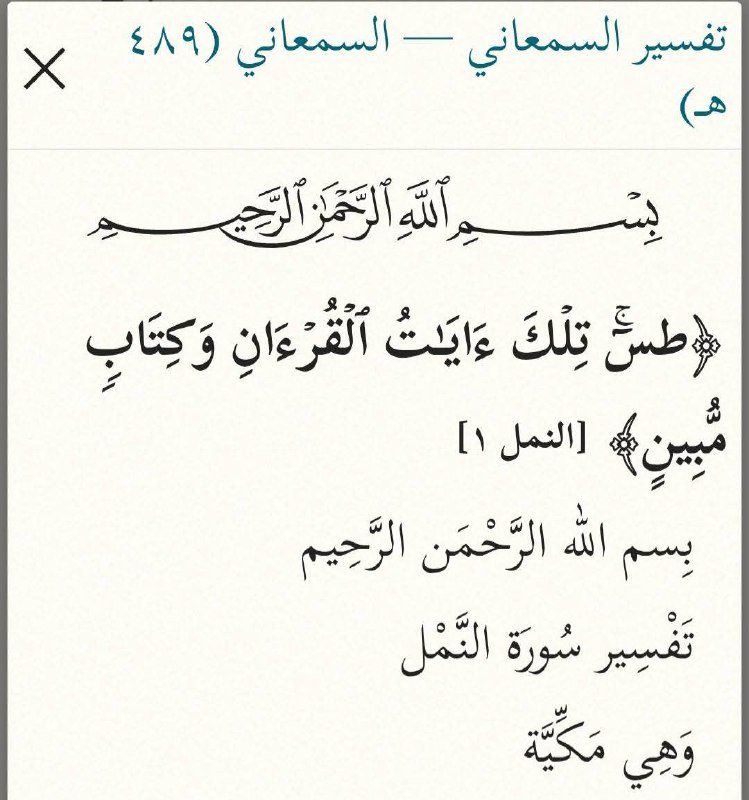 تفسير السمعاني — السمعاني (٤٨٩
هـ)
بِسْمِ ٱللَّهِ ٱلرَّحْمَٰنِ ٱلرَّحِيمِ
﴿طسۤۚ تِلۡكَ ءَایَـٰتُ ٱلۡقُرۡءَانِ وَكِتَابࣲ
مُّبِینٍ﴾ [النمل ١]
بِسم الله الرَّحْمَن الرَّحِيم
تَفْسِير سُورَة النَّمْل
وَهِي مَكِّيَّة